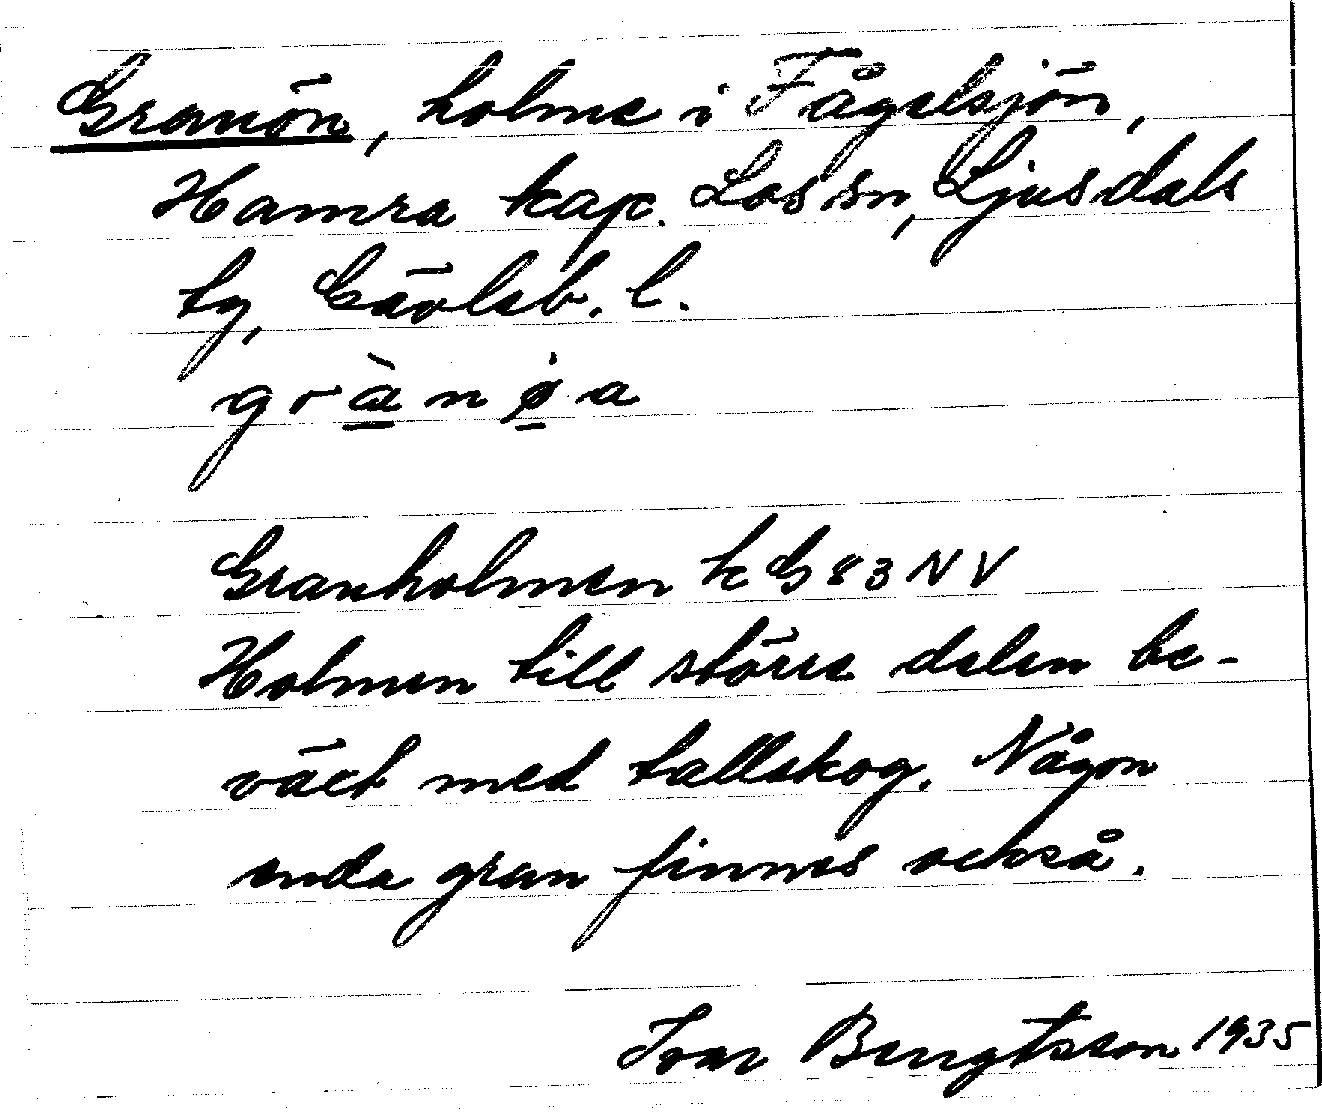 Granön, holme i Fågelsjön,
Hamra kap. Los sn, Ljusdals
tg, Gävleb. l.
grànøa
Granholmen k G 83 NV
Holmen till större delen be-
växt med tallskog. Någon
enda gran finnes också.
Ivar Bengtsson 1935